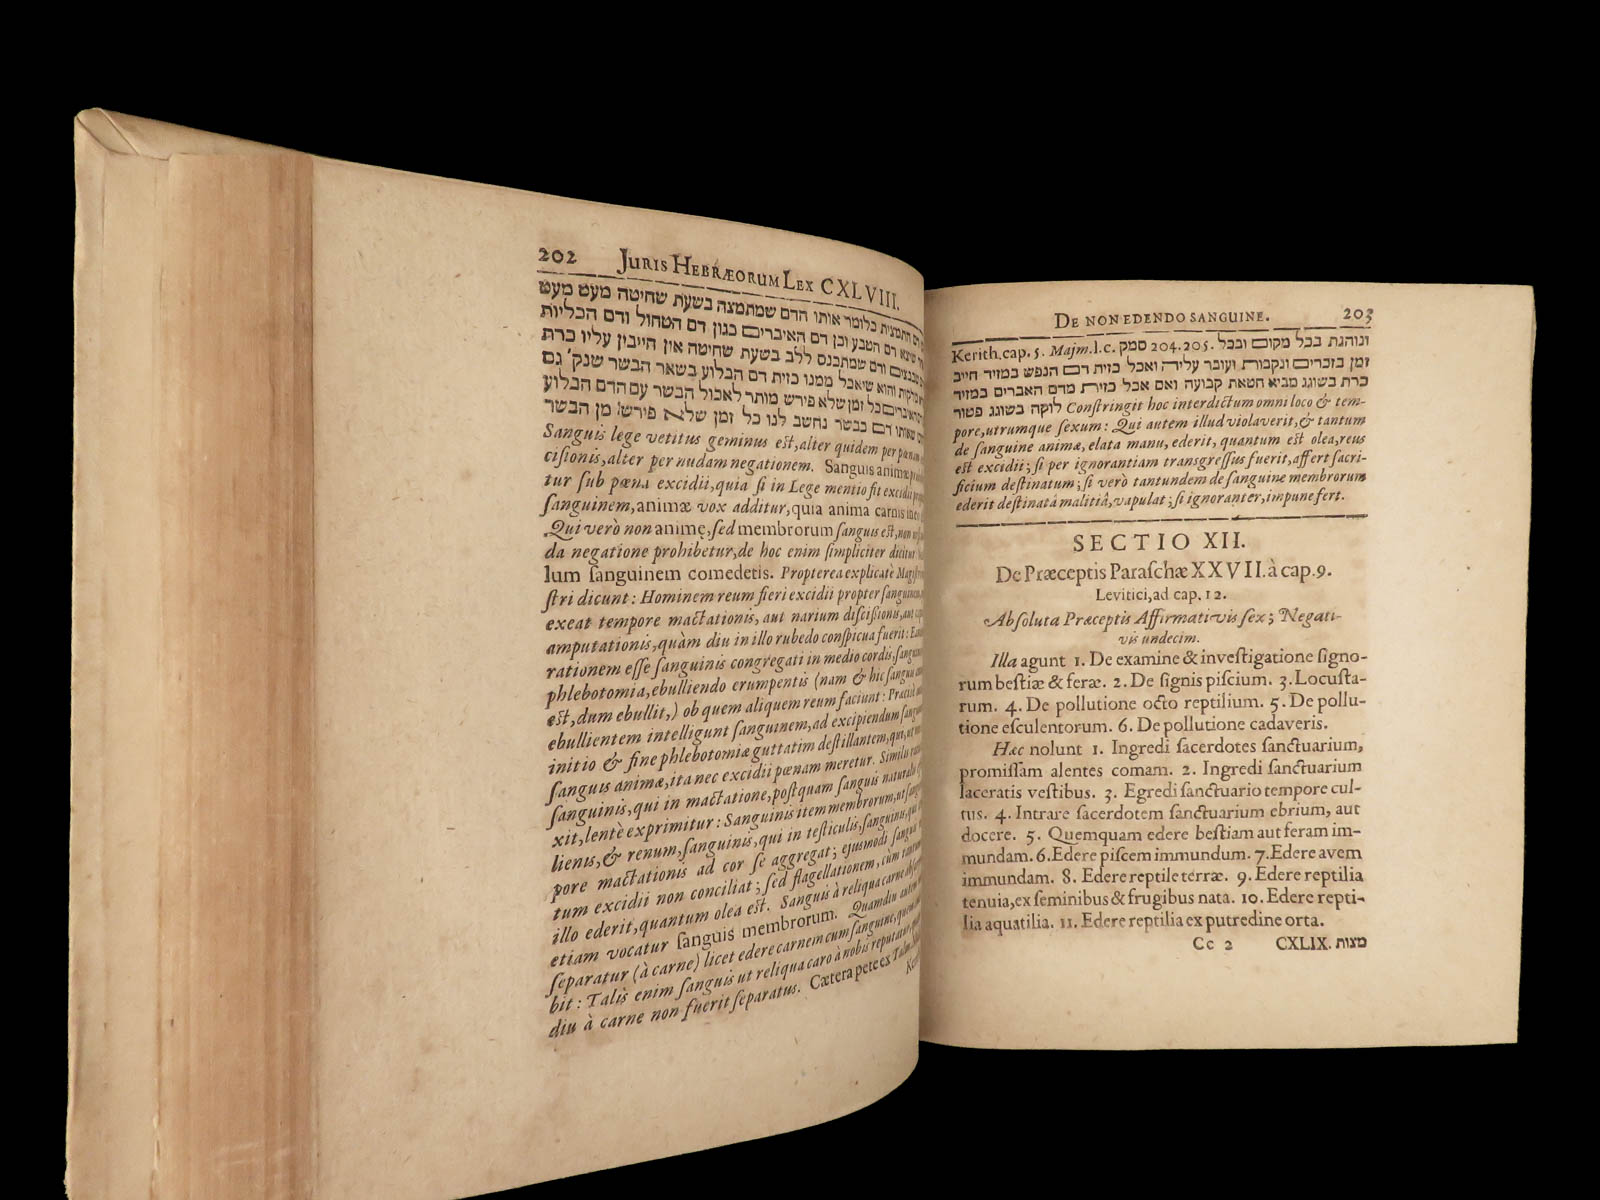 202 JURIS HEBRÆORUM LEX CXLVIII.
דם התמצית כלומר אותו הדם שמתמצה בשעת שחיטה מעט מעט
שיצא דם הטבע וכן דם האיברים כגון דם הטחול ודם הכליות
ודם שמתכנס ללב בשעת שחיטה אין חייבין עליו כרת
והוא שיאכל ממנו כזית דם הבלוע בשאר הבשר שנק' גם
כל זמן שלא פירש מותר לאכול הבשר עם הדם הבלוע
שאותו דם כבשר נחשב לנו כל זמן שלא פירש מן הבשר
Sanguis lege vetitus geminus est, alter quidem per pœnam
cisionis, alter per nudam negationem. Sanguis animæ
tur sub pœna excidii, quia si in Lege mentio fit excidii
sanguinem, animæ vox additur, quia anima carnis
Qui verò non animę, sed membrorum sanguis est, non
da negatione prohibetur, de hoc enim simpliciter dicitur
lum sanguinem comedetis. Propterea explicatè Magi-
stri dicunt: Hominem reum fieri excidii propter sanguinem,
exeat tempore mactationis, aut narium discisionis, aut
amputationis, quàm diu in illo rubedo conspicua fuerit:
rationem esse sanguinis congregati in medio cordis,
phlebotomia, ebulliendo erumpentis (nam & hic sanguis
est, dum ebullit,) ob quem aliquem reum faciunt:
ebullientem intelligunt sanguinem, ad excipiendum
initio & fine phlebotomiæ guttatim destillantem, qui,
sanguis animæ, ita nec excidii pœnam meretur. Similis
sanguinis, qui in mactatione, postquam sanguis naturalis
xit, lentè exprimitur: Sanguinis item membrorum, ut
lienis, & renum, sanguinis, qui in testiculis, sanguinis,
pore mactationis ad cor se aggregat; ejusmodi sanguis
tum excidii non conciliat; sed flagellationem, cùm
illo ederit, quantum olea est. Sanguis à reliqua carne
etiam vocatur sanguis membrorum. Quamdiu autem
separatur (à carne) licet edere carnem cum sanguine, quem
bit: Talis enim sanguis ut reliqua caro à nobis reputatur,
diu à carne non fuerit separatus. Cætera pete ex Talm.
Kerith.
DE NON EDENDO SANGUINE. 203
Kerith. cap. 5. Majm. l. c. סמק 204. 205. ונוהגת בכל מקום ובכל
זמן בזכרים ונקבות ועובר עליה ואכל כזית דם הנפש במזיד חייב
כרת בשוגג מביא חטאת קבועה ואם אכל כזית מדם האברים במזיד
לוקה בשוגג פטור Constringit hoc interdictum omni loco & tem-
pore, utrumque sexum: Qui autem illud violaverit, & tantum
de sanguine animæ, elata manu, ederit, quantum est olea, reus
est excidii; si per ignorantiam transgressus fuerit, affert sacri-
ficium destinatum; si verò tantundem de sanguine membrorum
ederit destinatâ malitiâ, vapulat; si ignoranter, impune fert.
SECTIO XII.
De Præceptis Paraschæ XXVII. à cap. 9.
Levitici, ad cap. 12.
Absoluta Præceptis Affirmativis sex; Negati-
vis undecim.
Illa agunt 1. De examine & investigatione signo-
rum bestiæ & feræ. 2. De signis piscium. 3. Locusta-
rum. 4. De pollutione octo reptilium. 5. De pollu-
tione esculentorum. 6. De pollutione cadaveris.
Hæc nolunt 1. Ingredi sacerdotes sanctuarium,
promissam alentes comam. 2. Ingredi sanctuarium
laceratis vestibus. 3. Egredi sanctuario tempore cul-
tus. 4. Intrare sacerdotem sanctuarium ebrium, aut
docere. 5. Quemquam edere bestiam aut feram im-
mundam. 6. Edere piscem immundum. 7. Edere avem
immundam. 8. Edere reptile terræ. 9. Edere reptilia
tenuia, ex seminibus & frugibus nata. 10. Edere repti-
lia aquatilia. 11. Edere reptilia ex putredine orta.
Cc 2 CXLIX. מצות